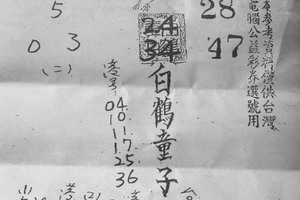 本參考資料僅供台灣
電腦公益彩券選號用
28
47
24
34
白鶴童子
5
0 3
(二)
港号
04
10
11
17
25
36